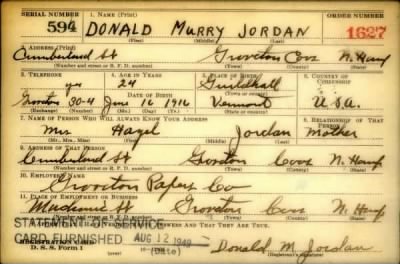 SERIAL NUMBER 1. NAME (Print) ORDER NUMBER
594 DONALD MURRY JORDAN 1627
(First) (Middle) (Last)
2. ADDRESS (Print)
Cumberland St Groveton Coos N. Hamp
(Number and street or R. F. D. number) (Town) (County) (State)
3. TELEPHONE 4. AGE IN YEARS 5. PLACE OF BIRTH 6. COUNTRY OF CITIZENSHIP
yes 24 Guildhall
DATE OF BIRTH (Town or county)
Groveton 30-4 June 16 1916 Vermont U.S.A.
(Exchange) (Number) (Mo.) (Day) (Yr.) (State or country)
7. NAME OF PERSON WHO WILL ALWAYS KNOW YOUR ADDRESS 8. RELATIONSHIP OF THAT PERSON
Mrs Hazel Jordan Mother
(Mr., Mrs., Miss) (First) (Middle) (Last)
9. ADDRESS OF THAT PERSON
Cumberland St Groveton Coos N. Hamp
(Number and street or R. F. D. number) (Town) (County) (State)
10. EMPLOYER'S NAME
Groveton Papers Co
11. PLACE OF EMPLOYMENT OR BUSINESS
Mechanic St Groveton Coos N. Hamp
(Number and street or R. F. D. number) (Town) (County) (State)
STATEMENT OF SERVICE
ANSWERS AND THAT THEY ARE TRUE.
REGISTRATION CARD
CARD FURNISHED AUG 12 1949
D. S. S. Form 1 (Date) Donald M. Jordan